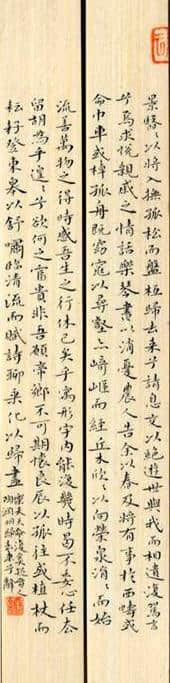 景翳〻以將入撫孤松而盤桓歸去来兮請息交以絶遊世與我而相遺復駕言
兮焉求悦親戚之情話樂琴書以消憂農人告余以春及將有事於西疇或
命巾車或棹孤舟既窈窕以尋壑亦崎嶇而經丘木欣〻以向榮泉涓〻而始
流善萬物之得時感吾生之行休已矣乎寓形宇内能復幾時曷不委心任去
留胡為乎遑〻兮欲何之富貴非吾願帝鄉不可期懷良辰以孤往或植杖而
耘耔登東皋以舒嘯臨清流而賦詩聊乘化以歸盡
樂夫天命復奚疑
陶淵明歸去来兮辭